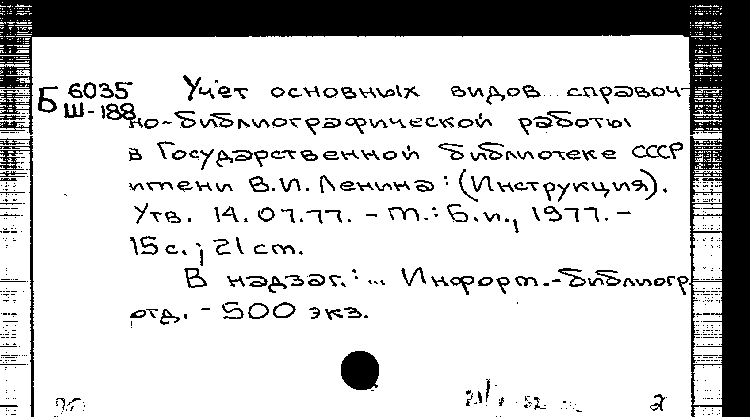 Б 6035
Ш-188
Учет основных видов справоч-
но-библиографической работы
в Государственной библиотеке СССР
имени В.И. Ленина: (Инструкция).
Утв. 14.07.77. - М.: Б.и., 1977. -
15 с.; 21 см.
В надзаг.: ... Информ.-библиогр
отд. - 500 экз.